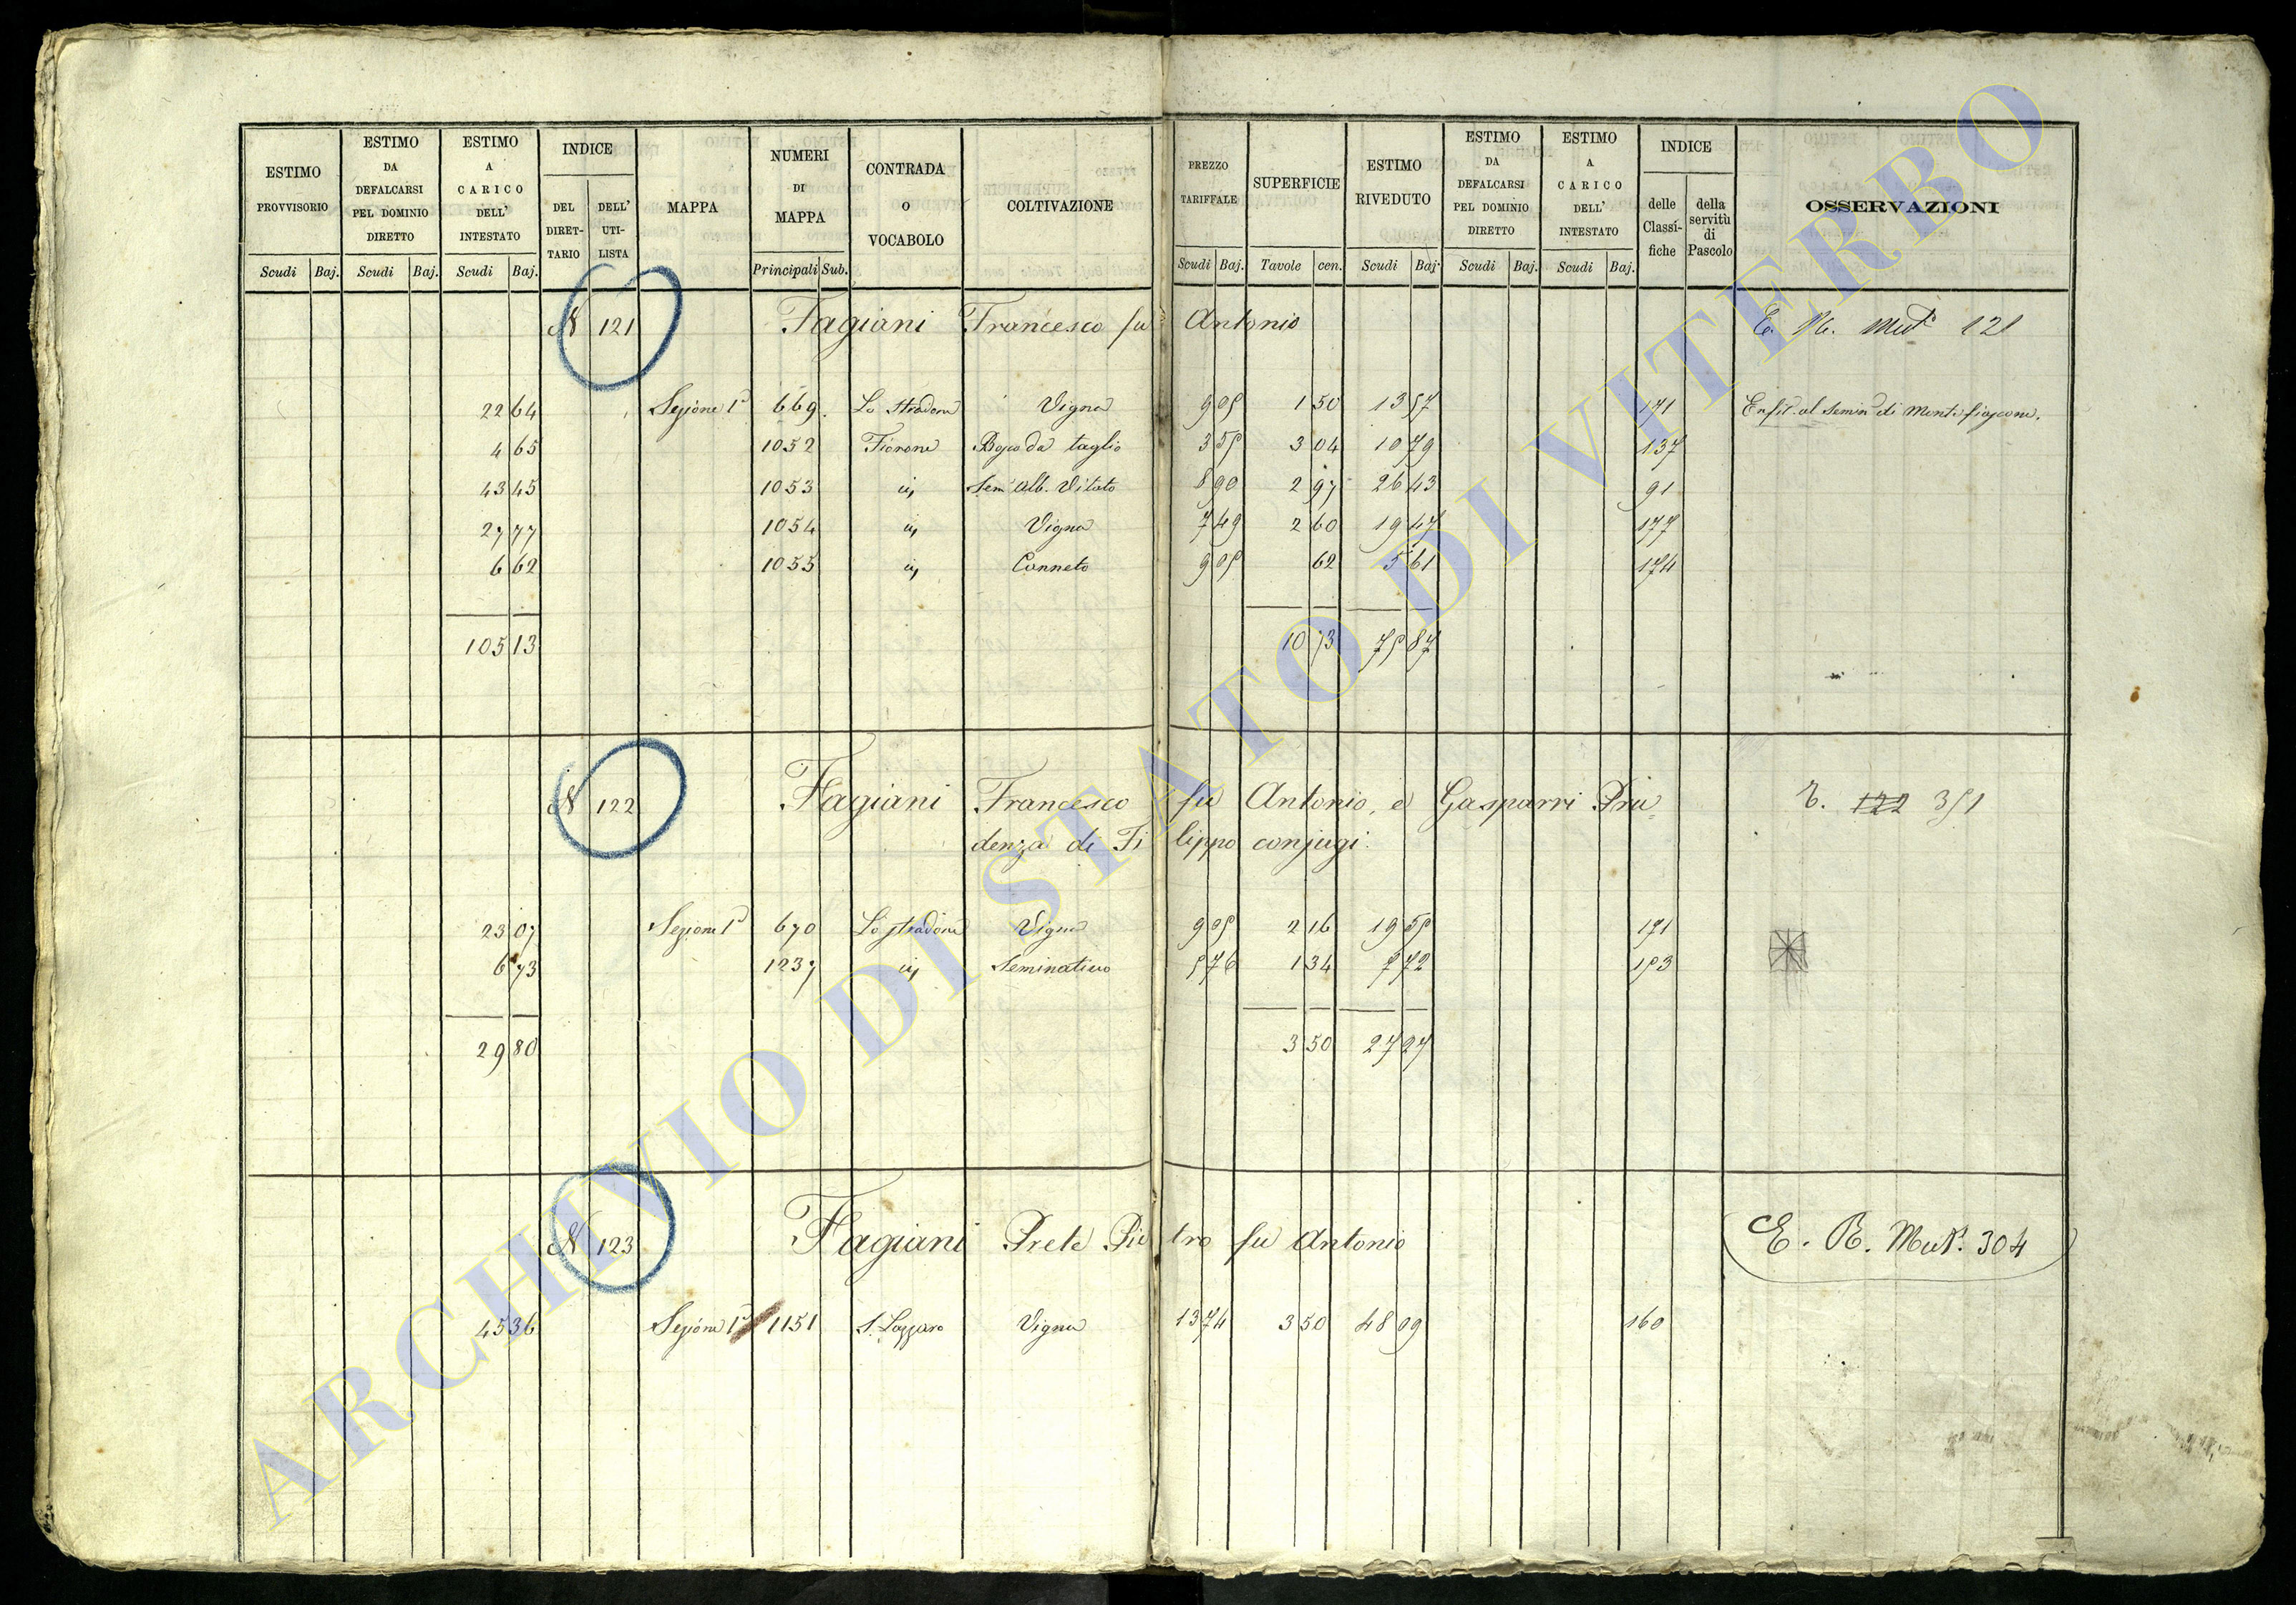 ESTIMO PROVVISORIO | ESTIMO DA DEFALCARSI PEL DOMINIO DIRETTO | ESTIMO A CARICO DELL' INTESTATO | INDICE DEL DIRET-TARIO | DELL' UTI-LISTA | MAPPA | NUMERI DI MAPPA | CONTRADA O VOCABOLO | COLTIVAZIONE | PREZZO TARIFFALE | SUPERFICIE | ESTIMO RIVEDUTO | ESTIMO DA DEFALCARSI PEL DOMINIO DIRETTO | ESTIMO A CARICO DELL' INTESTATO | INDICE delle Classi-fiche | della servitù di Pascolo | OSSERVAZIONI
Scudi | Baj. | Scudi | Baj. | Scudi | Baj. | Principali | Sub. | Scudi | Baj. | Tavole | cen. | Scudi | Baj. | Scudi | Baj. | Scudi | Baj.
N 121 Fagiani Francesco fu Antonio E. R. Mut. 121
22 64 Sezione 1ª 669. Lo Stradone Vigna 9 05 1 50 13 57 171 Enfit. al Semin. di Montefiascone.
4 65 1052 Fiorone Bosco da taglio 3 55 3 04 10 79 137
43 45 1053 Sem. Alb. Vitato 8 90 2 97 26 43 91
27 77 1054 Vigna 7 49 2 60 19 47 177
6 62 1055 Canneto 9 05 62 5 61 174
105 13 10 73 75 87
N 122 Fagiani Francesco fu Antonio, e Gasparri Pru=
denza di Filippo conjugi. 122 351
23 07 Sezione 1ª 670 Lo Stradone Vigna 9 05 2 16 19 55 171
6 73 1237 Seminativo 5 76 1 34 7 72 153
29 80 3 50 27 27
N 123 Fagiani Prete Pietro fu Antonio E. R. Mut. 304
45 36 Sezione 1ª 1151 S. Lazzaro Vigna 13 74 3 50 48 09 160
ARCHIVIO DI STATO DI VITERBO